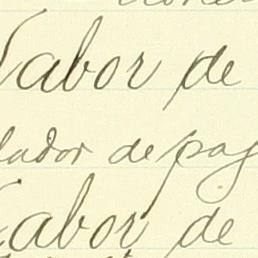 Labor de
lador de pag
Labor de